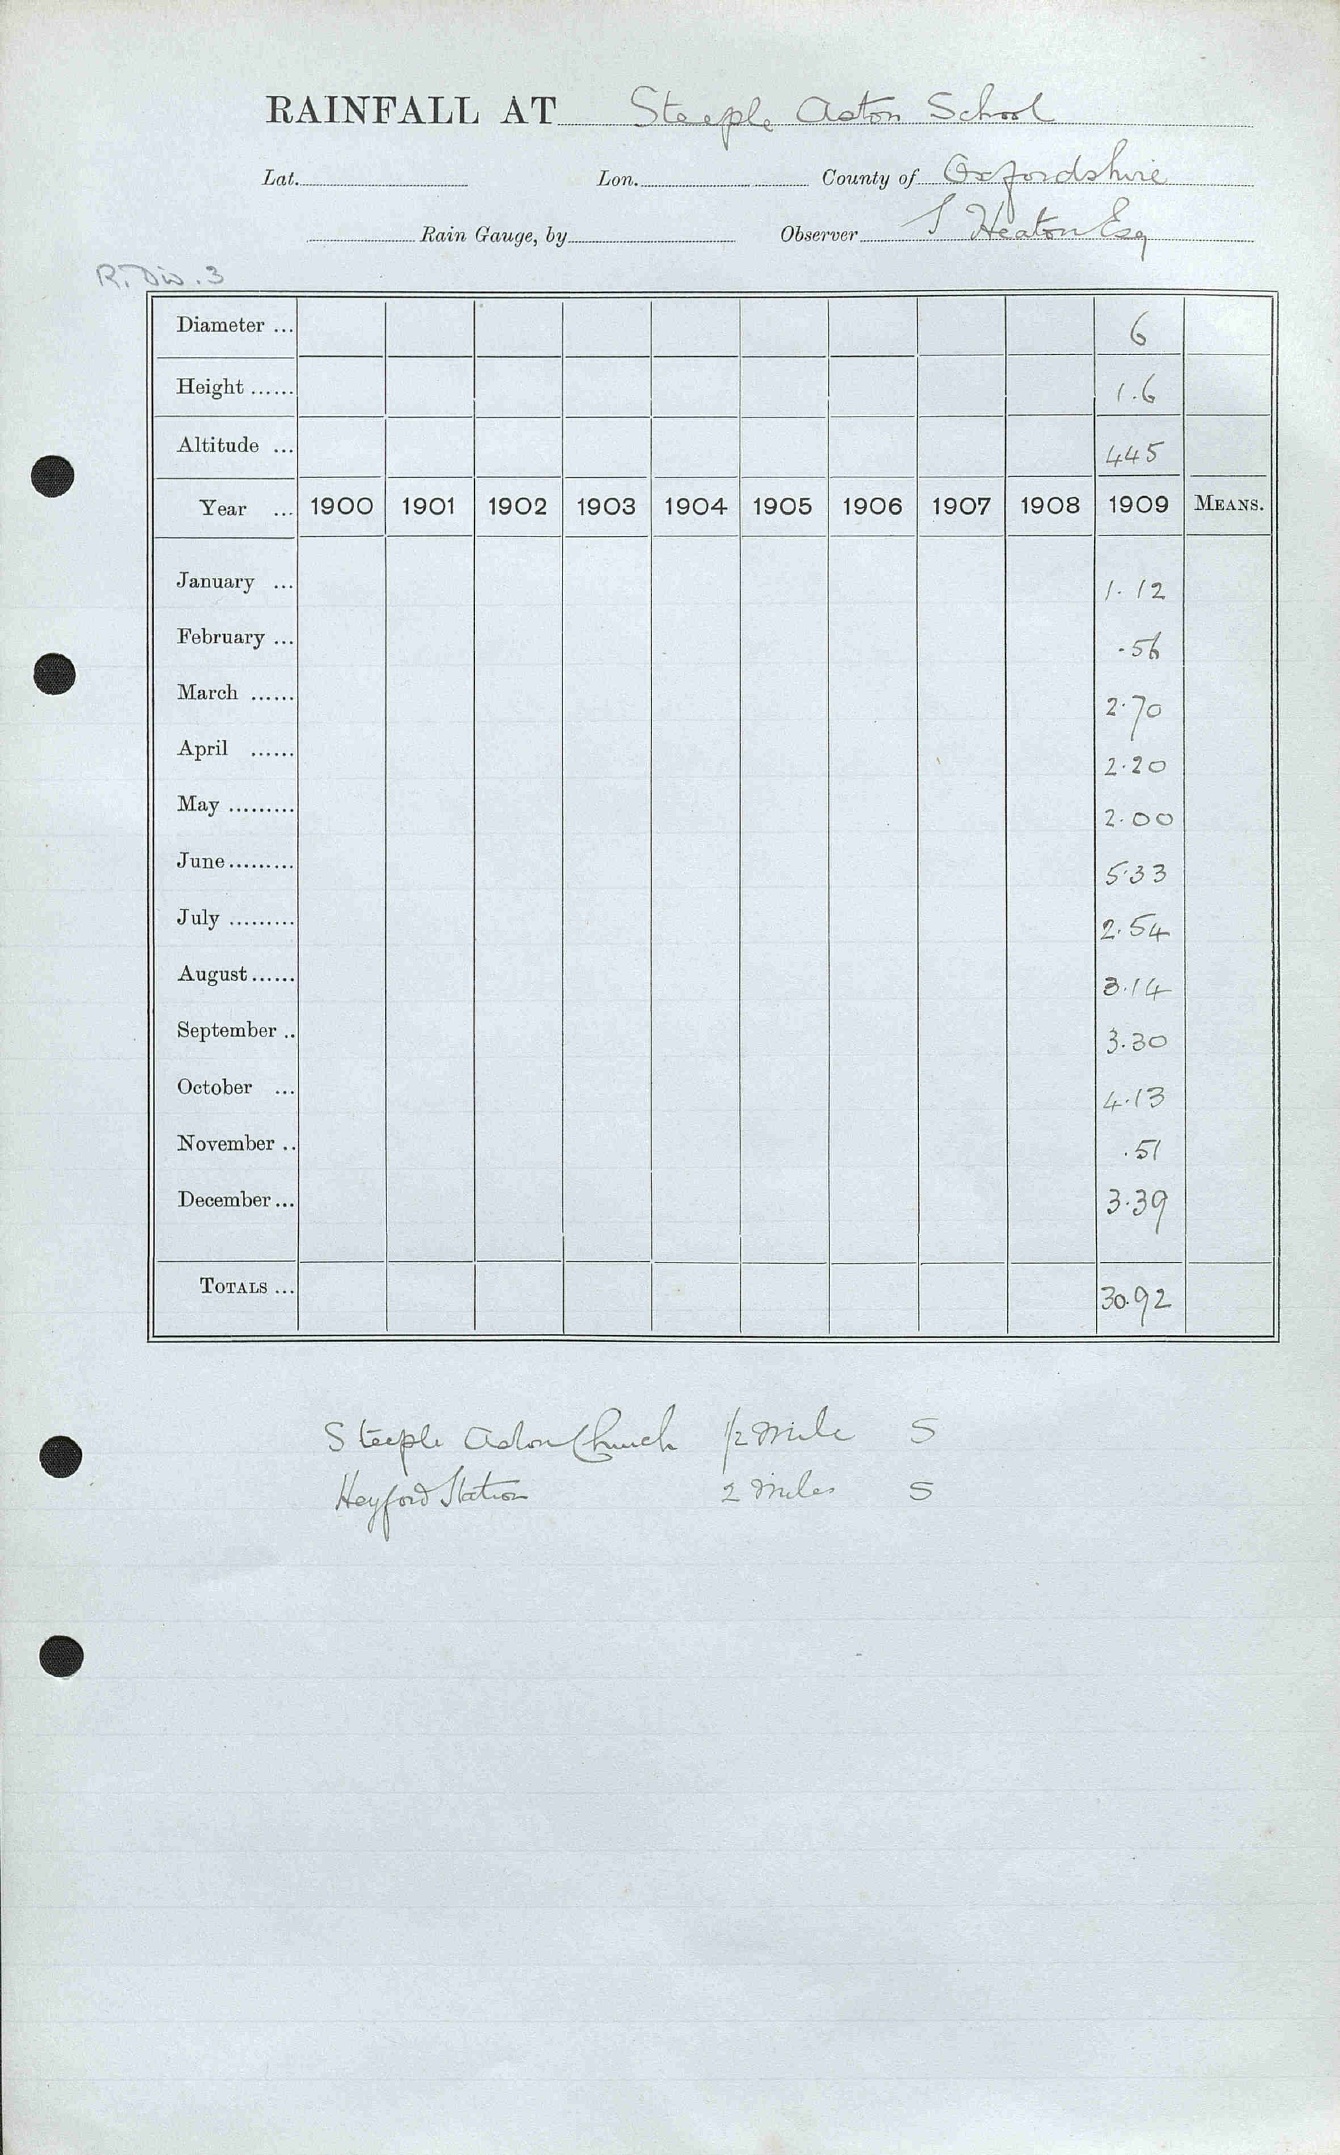 RAINFALL AT Steeple Aston School
Lat. Lon. County of Oxfordshire
Rain Gauge, by Observer J Heaton Esq
R. Div. 3
Diameter ... 6
Height ...... 1.6
Altitude ... 445
Year ... 1900 1901 1902 1903 1904 1905 1906 1907 1908 1909 MEANS.
January ... 1.12
February ... .56
March ...... 2.70
April ...... 2.20
May ......... 2.00
June ......... 5.33
July ......... 2.54
August ...... 3.14
September .. 3.30
October ... 4.13
November .. .51
December ... 3.39
TOTALS ... 30.92
Steeple Aston Church 1/2 Mile S
Heyford Station 2 Miles S